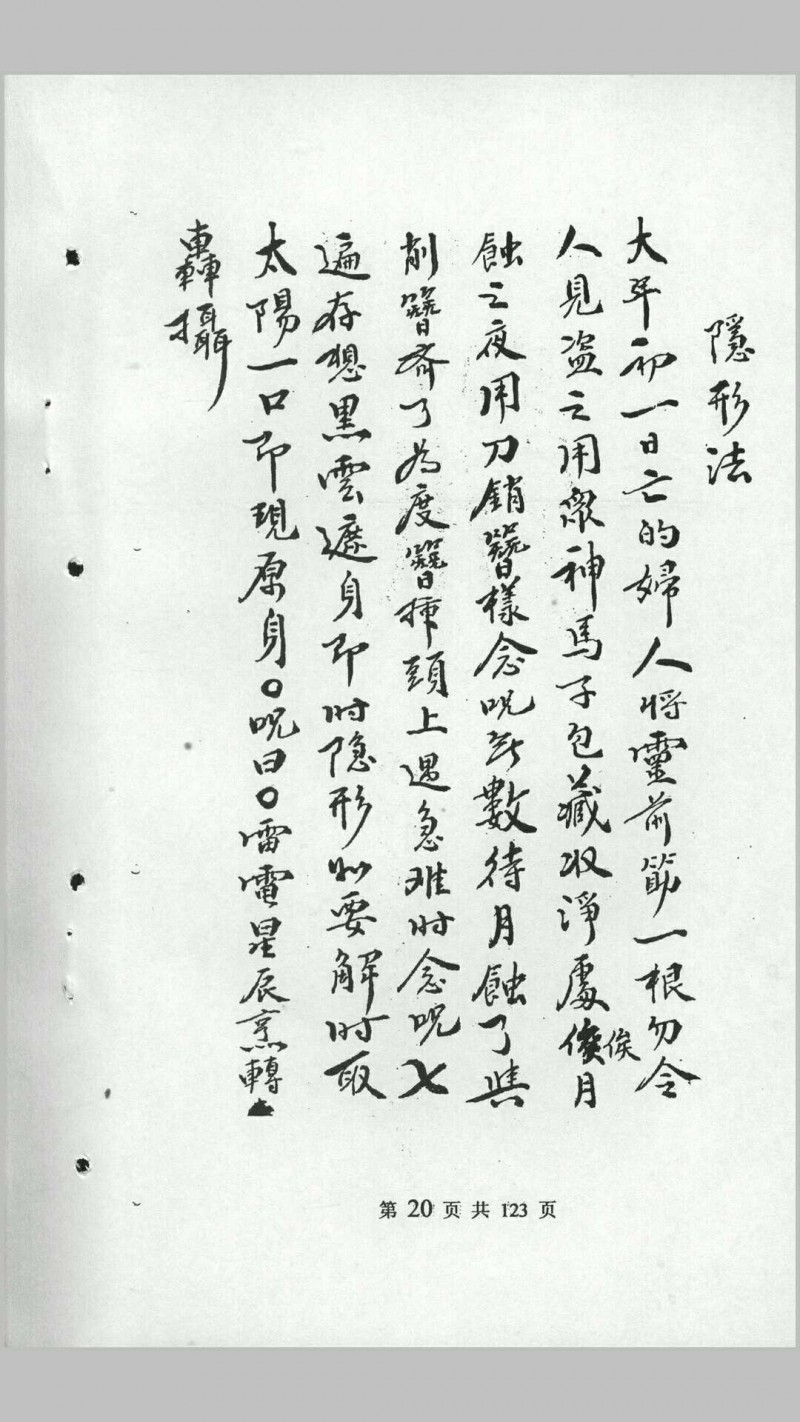 隱形法
大年初一日亡的婦人將靈前筯一根勿令
人見盗之用眾神馬子包藏收淨處俟月
蝕之夜用刀銷簪樣念呪無數待月蝕了與
削簪齊了為度簪揷頭上遇急难时念呪七
遍存想黑雲遮身即时隐形如要解时取
太陽一口即現原身〇呪曰〇雷電星辰烹轉
轟攝
第 20 页 共 123 页